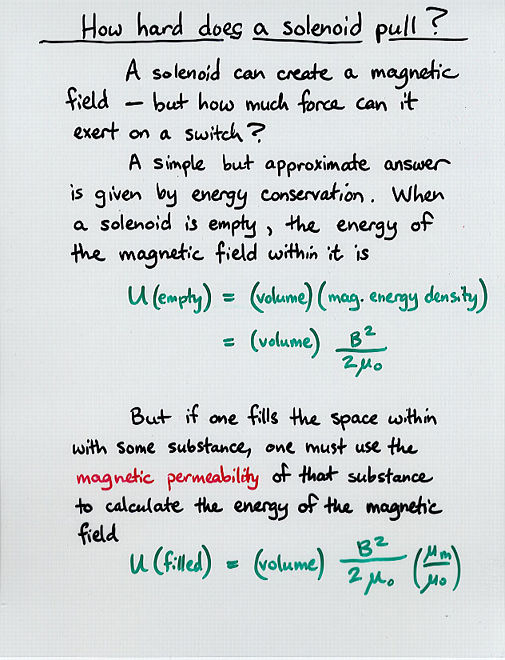 How hard does a solenoid pull?
A solenoid can create a magnetic
field — but how much force can it
exert on a switch?
A simple but approximate answer
is given by energy conservation. When
a solenoid is empty, the energy of
the magnetic field within it is
U(empty) = (volume)(mag. energy density)
= (volume) B²/2μ₀
But if one fills the space within
with some substance, one must use the
magnetic permeability of that substance
to calculate the energy of the magnetic
field
U(filled) = (volume) B²/2μ₀ (μm/μ₀)